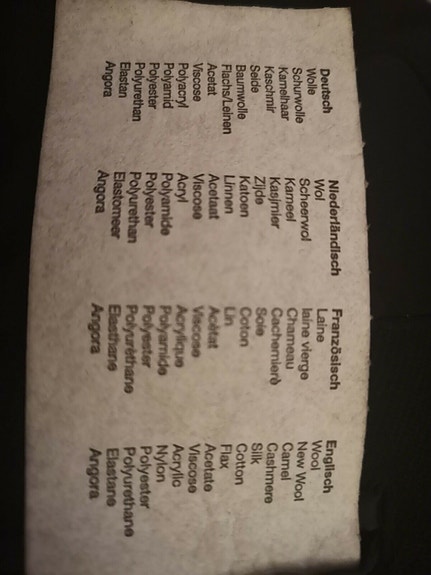 Deutsch Niederländisch Französisch Englisch
Wolle Wol Laine Wool
Schurwolle Scheerwol laine vierge New Wool
Kamelhaar Kameel Chameau Camel
Kaschmir Kasjmier Cachemierè Cashmere
Seide Zijde Soie Silk
Baumwolle Katoen Coton Cotton
Flachs/Leinen Linnen Lin Flax
Acetat Acetaat Acètat Acetate
Viscose Viscose Viscose Viscose
Polyacryl Acryl Acrylique Acrylic
Polyamid Polyamide Polyamide Nylon
Polyester Polyester Polyester Polyester
Polyurethan Polyurethan Polyurèthane Polyurethane
Elastan Elastomeer Elasthane Elastane
Angora Angora Angora Angora